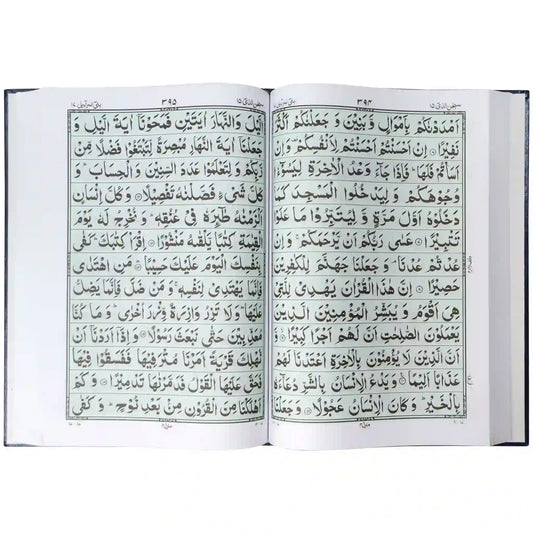 سبحن الذی ۱۵
۳۹۴
بنی اسرآءیل ۱۷
اَمْدَدْنٰكُمْ بِاَمْوَالٍ وَّ بَنِيْنَ وَ جَعَلْنٰكُمْ اَكْثَرَ
نَفِيْرًا اِنْ اَحْسَنْتُمْ اَحْسَنْتُمْ لِاَنْفُسِكُمْ وَ اِنْ
اَسَاْتُمْ فَلَهَا فَاِذَا جَآءَ وَعْدُ الْاٰخِرَةِ لِيَسُوْٓءٗا
وُجُوْهَكُمْ وَ لِيَدْخُلُوا الْمَسْجِدَ كَمَا
دَخَلُوْهُ اَوَّلَ مَرَّةٍ وَّ لِيُتَبِّرُوْا مَا عَلَوْا
تَتْبِيْرًا عَسٰى رَبُّكُمْ اَنْ يَّرْحَمَكُمْ وَ اِنْ
عُدْتُّمْ عُدْنَا وَ جَعَلْنَا جَهَنَّمَ لِلْكٰفِرِيْنَ
حَصِيْرًا اِنَّ هٰذَا الْقُرْاٰنَ يَهْدِيْ لِلَّتِيْ
هِيَ اَقْوَمُ وَ يُبَشِّرُ الْمُؤْمِنِيْنَ الَّذِيْنَ
يَعْمَلُوْنَ الصّٰلِحٰتِ اَنَّ لَهُمْ اَجْرًا كَبِيْرًا وَّ
اَنَّ الَّذِيْنَ لَا يُؤْمِنُوْنَ بِالْاٰخِرَةِ اَعْتَدْنَا لَهُمْ
عَذَابًا اَلِيْمًا وَ يَدْعُ الْاِنْسَانُ بِالشَّرِّ دُعَآءَهٗ
بِالْخَيْرِ وَ كَانَ الْاِنْسَانُ عَجُوْلًا وَ جَعَلْنَا
سبحن الذی ۱۵
۳۹۵
بنی اسرآءیل ۱۷
الَّيْلَ وَالنَّهَارَ اٰيَتَيْنِ فَمَحَوْنَآ اٰيَةَ الَّيْلِ وَ
جَعَلْنَآ اٰيَةَ النَّهَارِ مُبْصِرَةً لِّتَبْتَغُوْا فَضْلًا مِّنْ
رَّبِّكُمْ وَ لِتَعْلَمُوْا عَدَدَ السِّنِيْنَ وَ الْحِسَابَ وَ
كُلَّ شَيْءٍ فَصَّلْنٰهُ تَفْصِيْلًا وَ كُلَّ اِنْسَانٍ
اَلْزَمْنٰهُ طٰٓئِرَهٗ فِيْ عُنُقِهٖ وَ نُخْرِجُ لَهٗ يَوْمَ
الْقِيٰمَةِ كِتٰبًا يَّلْقٰىهُ مَنْشُوْرًا اِقْرَاْ كِتٰبَكَ كَفٰى
بِنَفْسِكَ الْيَوْمَ عَلَيْكَ حَسِيْبًا مَنِ اهْتَدٰى
فَاِنَّمَا يَهْتَدِيْ لِنَفْسِهٖ وَ مَنْ ضَلَّ فَاِنَّمَا يَضِلُّ
عَلَيْهَا وَ لَا تَزِرُ وَازِرَةٌ وِّزْرَ اُخْرٰى وَ مَا كُنَّا
مُعَذِّبِيْنَ حَتّٰى نَبْعَثَ رَسُوْلًا وَ اِذَآ اَرَدْنَآ اَنْ
نُّهْلِكَ قَرْيَةً اَمَرْنَا مُتْرَفِيْهَا فَفَسَقُوْا فِيْهَا
فَحَقَّ عَلَيْهَا الْقَوْلُ فَدَمَّرْنٰهَا تَدْمِيْرًا وَ كَمْ
اَهْلَكْنَا مِنَ الْقُرُوْنِ مِنْ بَعْدِ نُوْحٍ وَ كَفٰى